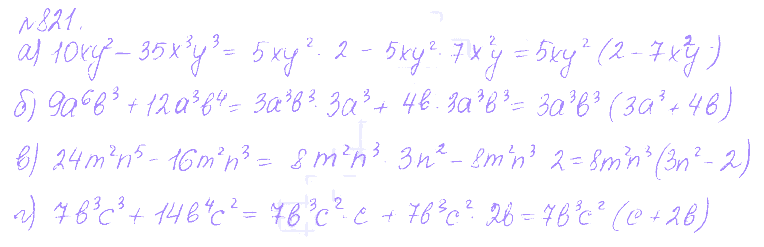 №821.
а) 10xy² − 35x³y³ = 5xy² · 2 − 5xy² · 7x²y = 5xy² (2 − 7x²y)
б) 9a⁶b³ + 12a³b⁴ = 3a³b³ · 3a³ + 4b · 3a³b³ = 3a³b³ (3a³ + 4b)
в) 24m²n⁵ − 16m²n³ = 8m²n³ · 3n² − 8m²n³ 2 = 8m²n³ (3n² − 2)
г) 7b³c³ + 14b⁴c² = 7b³c² · c + 7b³c² · 2b = 7b³c² (c + 2b)